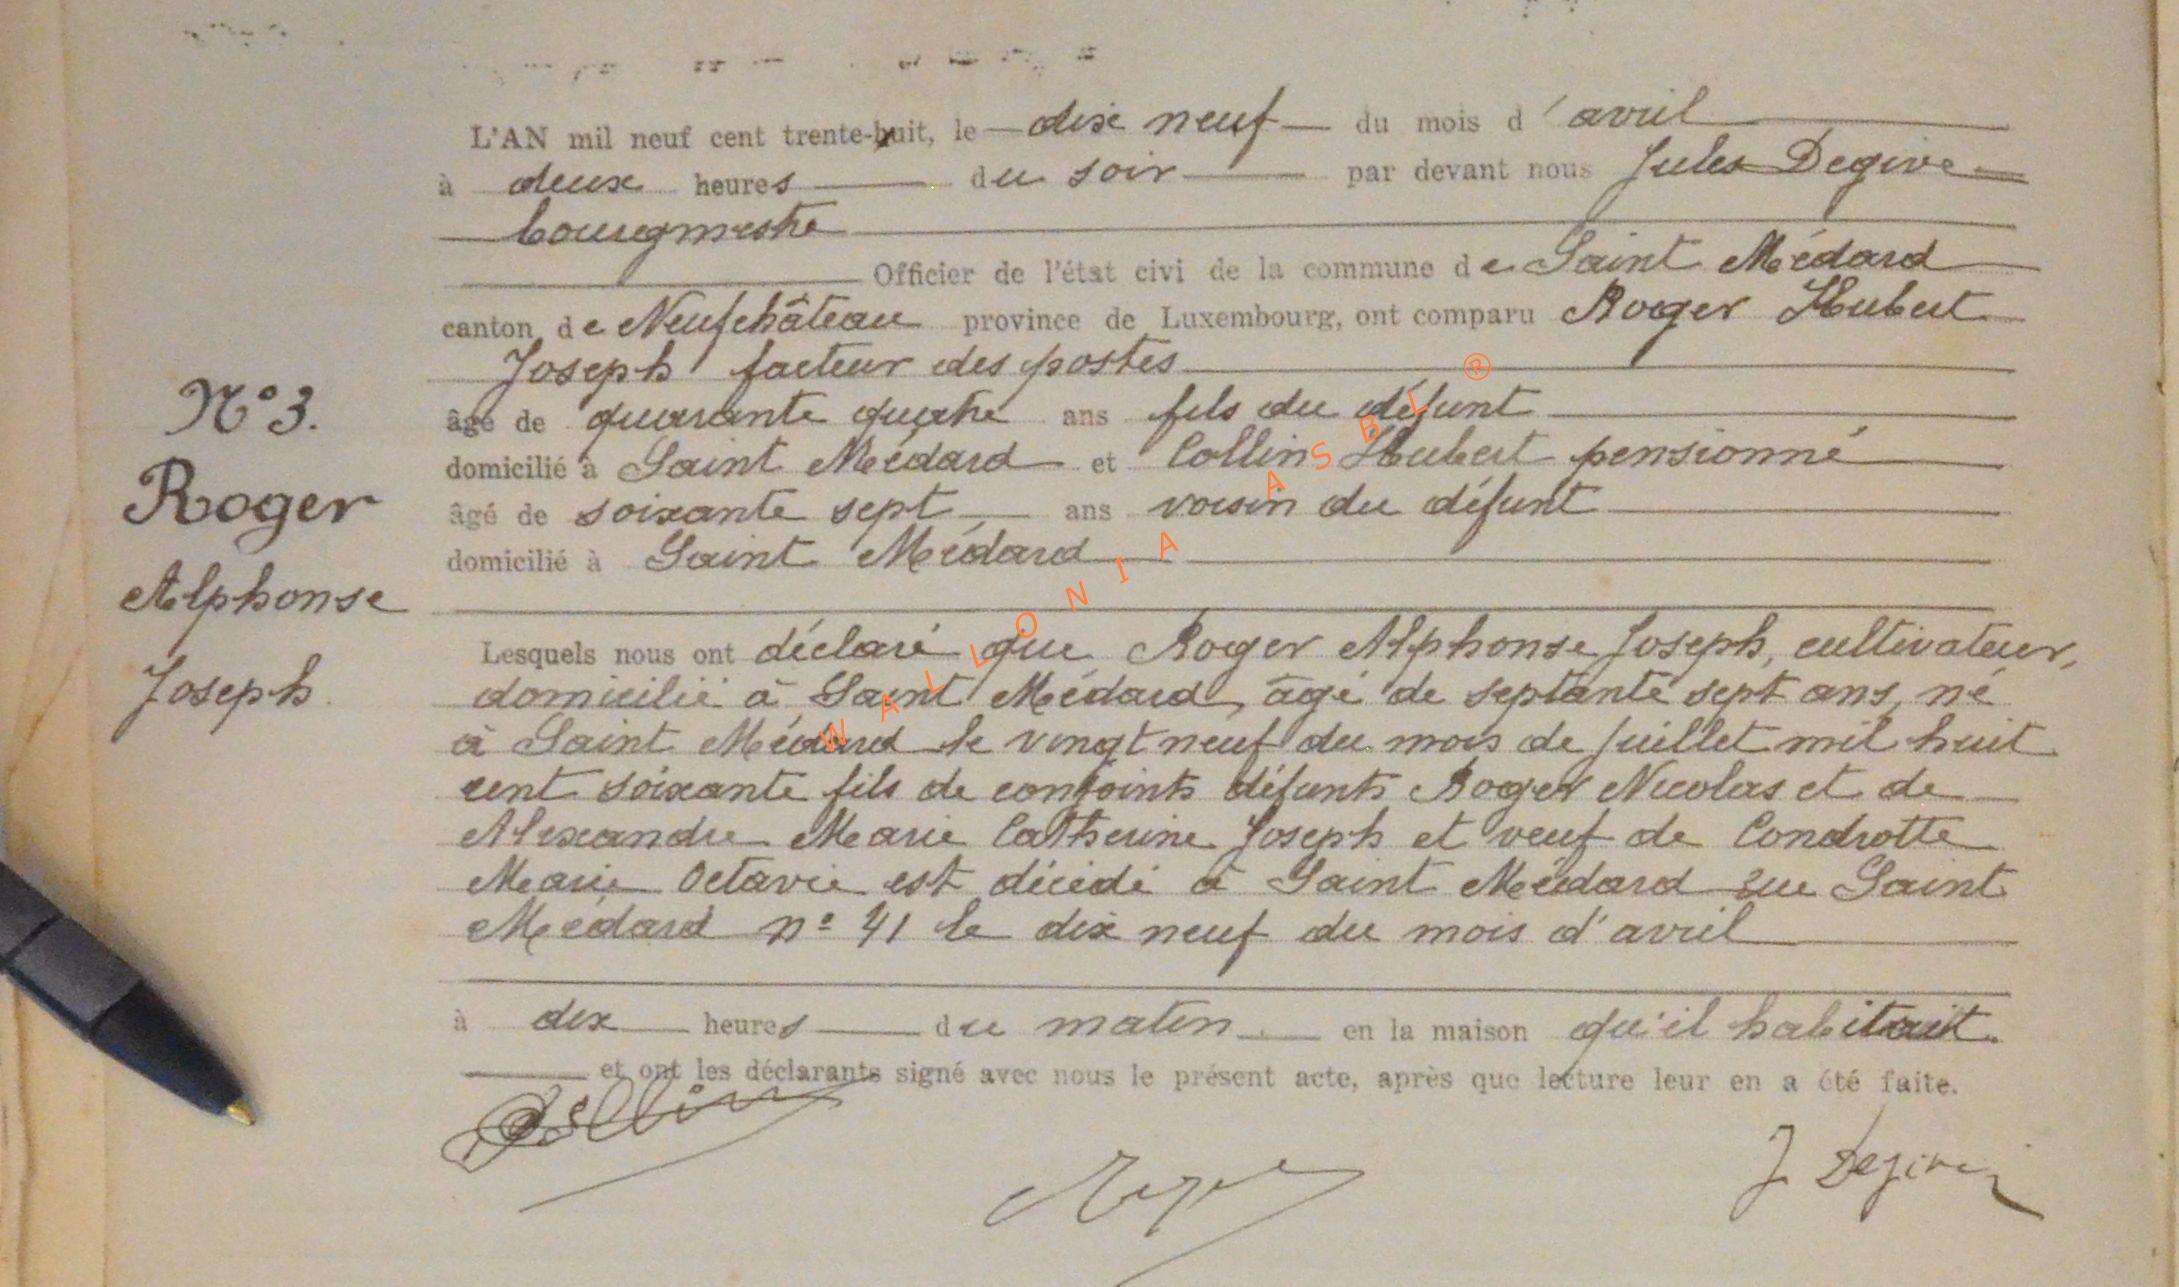 L'AN mil neuf cent trente-huit, le dix neuf du mois d'avril
à deux heures du soir par devant nous Jules Degive
bourgmestre
Officier de l'état civi de la commune de Saint Médard
canton de Neufchâteau province de Luxembourg, ont comparu Roger Hubert
Joseph facteur des postes
âgé de quarante quatre ans fils du défunt
domicilié à Saint Médard et Collin Hubert pensionné
âgé de soixante sept ans voisin du défunt
domicilié à Saint Médard
N° 3.
Roger
Alphonse
Joseph
Lesquels nous ont déclaré que Roger Alphonse Joseph, cultivateur,
domicilié à Saint Médard, âgé de septante sept ans, né
à Saint Médard le vingt neuf du mois de juillet mil huit
cent soixante fils de conjoints défunts Roger Nicolas et de
Alexandre Marie Catherine Joseph et veuf de Condrotte
Marie Octavie est décédé à Saint Médard rue Saint
Médard n° 41 le dix neuf du mois d'avril
à dix heures du matin en la maison qu'il habitait.
et ont les déclarants signé avec nous le présent acte, après que lecture leur en a été faite.
Collin
Roger
J Degive
WALLONIA ASBL ®